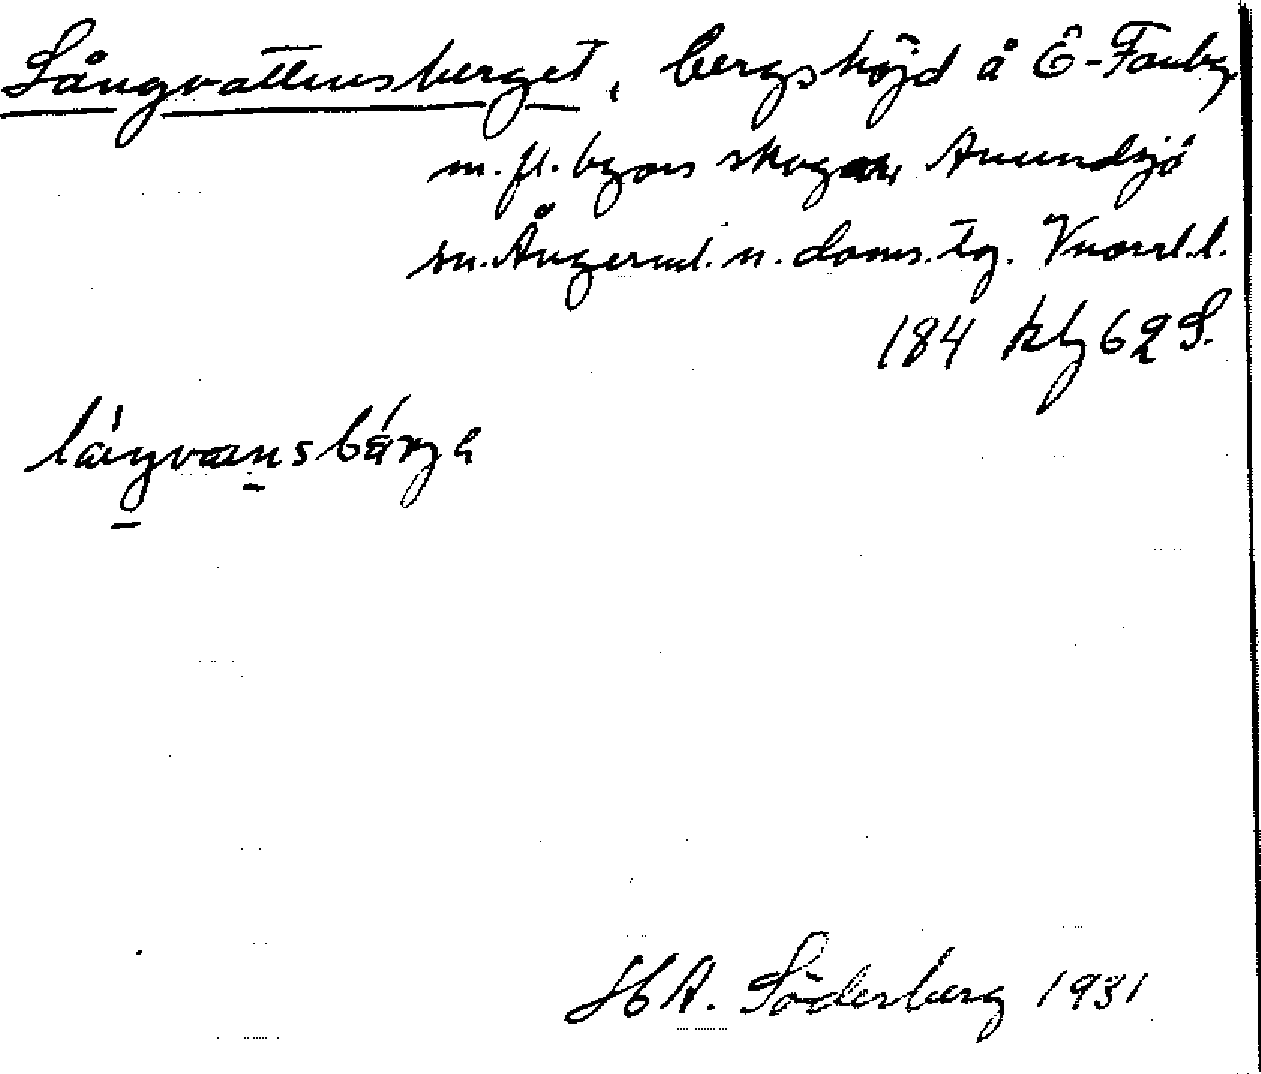 Långvattensberget, bergshöjd å Ö-Fanby
m. fl. byars skogar, Anundsjö
sn. Ångerml. n. doms. tg. Vnorrl. l.
184 kbj 62 S.
låŋvansbärje
H A. Söderberg 1931